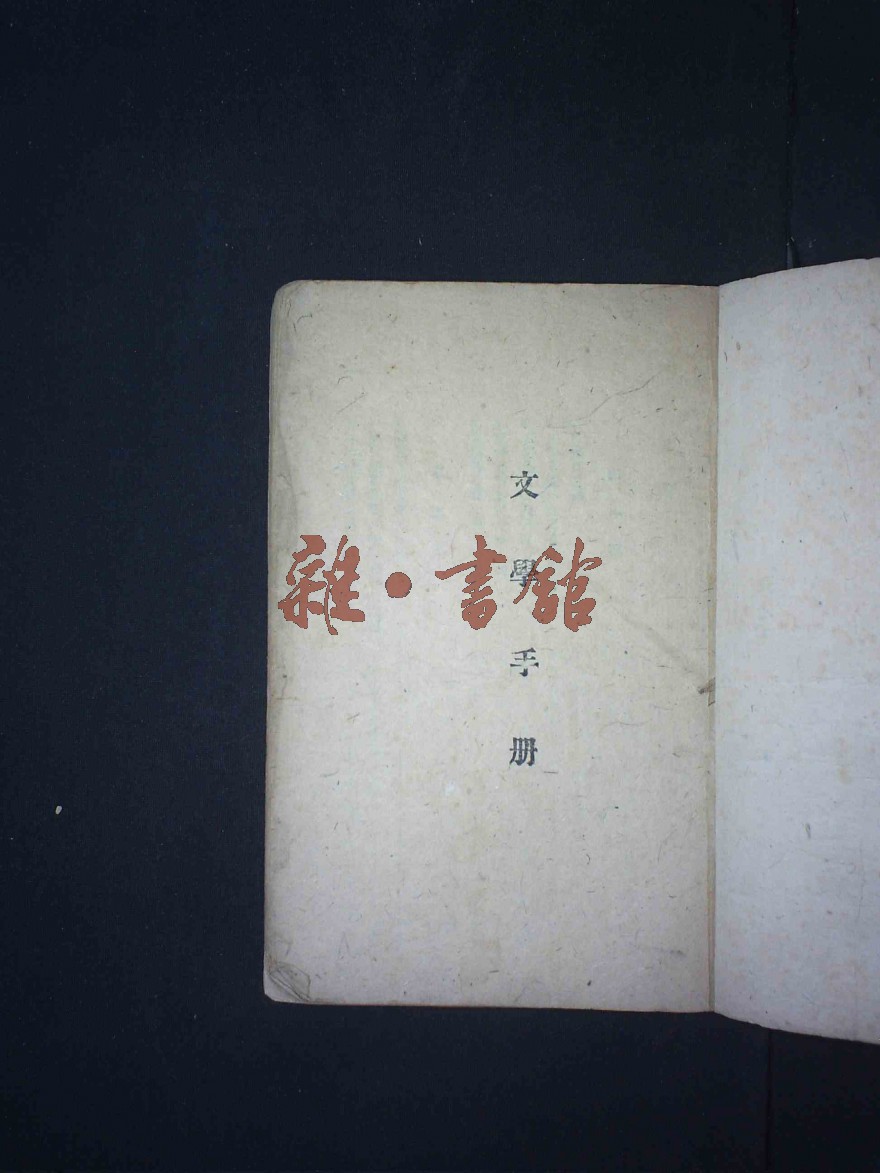 文學手册
雜·書館